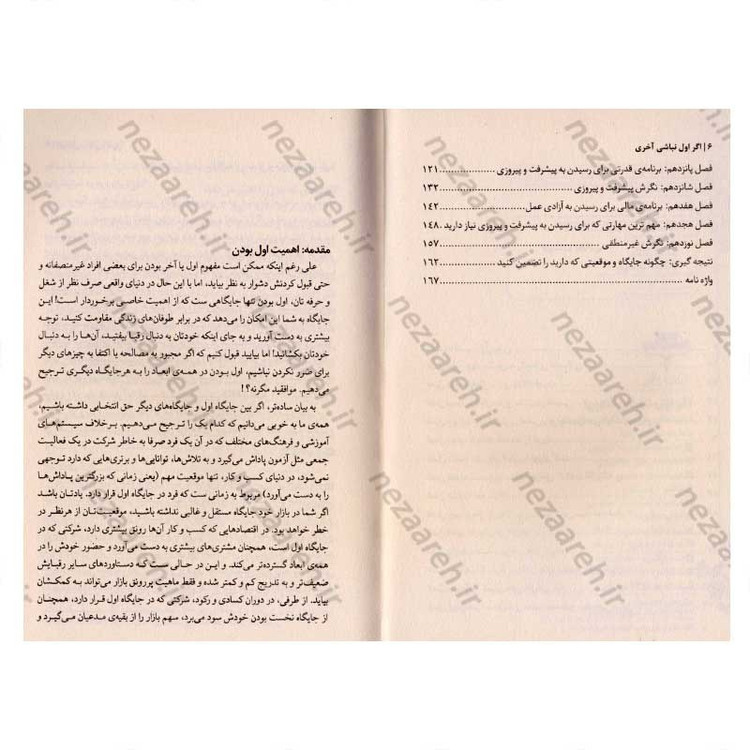 ۶ | اگر اول نباشی آخری
فصل پانزدهم: برنامه‌ی قدرتی برای رسیدن به پیشرفت و پیروزی ۱۲۱
فصل شانزدهم: نگرش پیشرفت و پیروزی ۱۳۲
فصل هفدهم: برنامه‌ی مالی برای رسیدن به آزادی عمل ۱۴۲
فصل هجدهم: مهم ترین مهارتی که برای رسیدن به پیشرفت و پیروزی نیاز دارید ۱۴۸
فصل نوزدهم: نگرش غیرمنطقی ۱۵۷
نتیجه گیری: چگونه جایگاه و موقعیتی که دارید را تضمین کنید ۱۶۲
واژه نامه ۱۶۷
مقدمه: اهمیت اول بودن
علی رغم اینکه ممکن است مفهوم اول یا آخر بودن برای بعضی افراد غیرمنصفانه و
حتی قبول کردنش دشوار به نظر بیاید، اما با این حال در دنیای واقعی صرف نظر از شغل
و حرفه تان، اول بودن تنها جایگاهی ست که از اهمیت خاصی برخوردار است! این
جایگاه به شما این امکان را می‌دهد که در برابر طوفان‌های زندگی مقاومت کنید، توجه
بیشتری به دست آورید و به جای اینکه خودتان به دنبال رقبا بیفتید، آن‌ها را به دنبال
خودتان بکشانید! اما بیایید قبول کنیم که اگر مجبور به مصالحه یا اکتفا به چیزهای دیگر
برای ضرر نکردن نباشیم، اول بودن در همه‌ی ابعاد را به هرجایگاه دیگری ترجیح
می‌دهیم. موافقید مگرنه؟!
به بیان ساده‌تر، اگر بین جایگاه اول و جایگاه‌های دیگر حق انتخابی داشته باشیم،
همه‌ی ما به خوبی می‌دانیم که کدام یک را ترجیح می‌دهیم. برخلاف سیستم‌های
آموزشی و فرهنگ‌های مختلف که در آن یک فرد صرفا به خاطر شرکت در یک فعالیت
جمعی مثل آزمون پاداش می‌گیرد و به تلاش‌ها، توانایی‌ها و برتری‌هایی که دارد توجهی
نمی‌شود، در دنیای کسب و کار، تنها موقعیت مهم (یعنی زمانی که بزرگترین پاداش‌ها
را به دست می‌آورد) مربوط به زمانی ست که فرد در جایگاه اول قرار دارد. یادتان باشد
اگر شما در بازار خود جایگاه مستقل و غالبی نداشته باشید، موقعیت‌تان از هرنظر در
خطر خواهد بود. در اقتصادهایی که کسب و کار آن‌ها رونق بیشتری دارد، شرکتی که در
جایگاه اول است، همچنان مشتری‌های بیشتری به دست می‌آورد و حضور خودش را در
همه‌ی ابعاد گسترده‌تر می‌کند. و این در حالی ست که دستاوردهای سایر رقبایش
ضعیف‌تر و به تدریج کم و کمتر شده و فقط ماهیت پررونق بازار می‌تواند به کمکشان
بیاید. از طرفی، در دوران کسادی و رکود، شرکتی که در جایگاه اول قرار دارد، همچنان
از جایگاه نخست بودن خودش سود می‌برد، سهم بازار را از بقیه‌ی مدعیان می‌گیرد و
nezaareh.ir